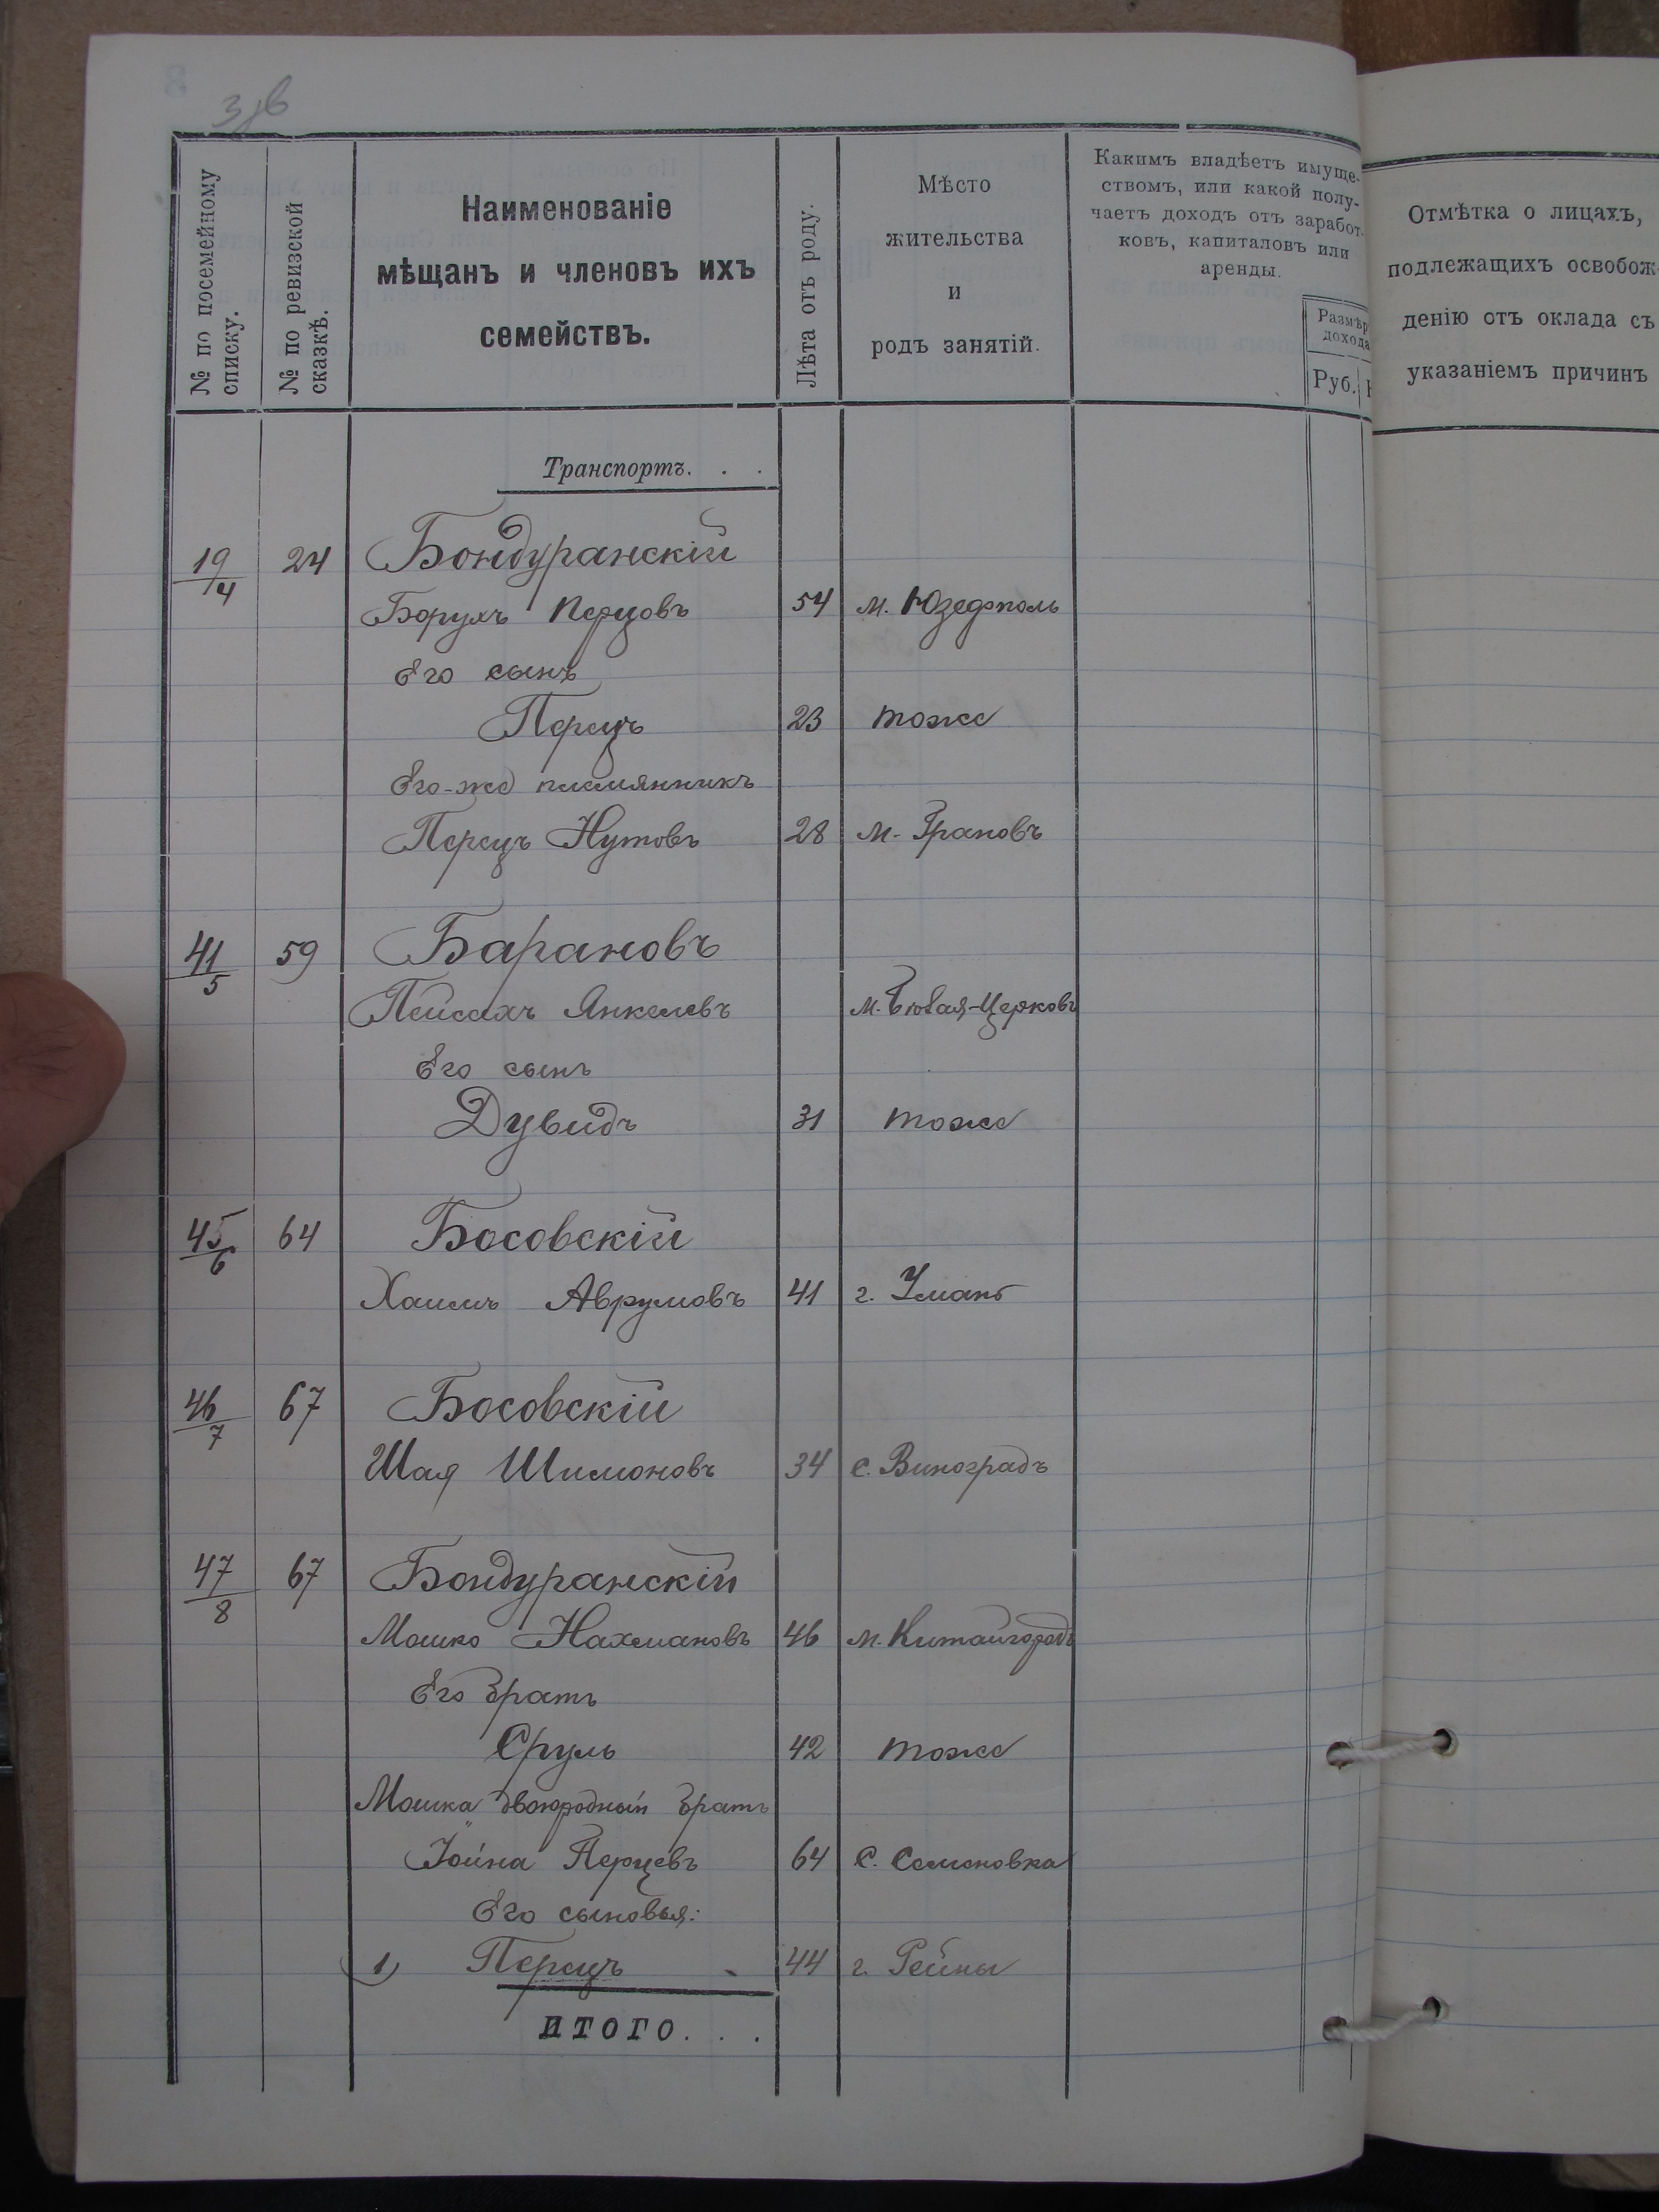 3 об
№ по посемейному
списку.
№ по ревизской
сказкѣ.
Наименованіе
мѣщанъ и членовъ ихъ
семействъ.
Лѣта отъ роду.
Мѣсто
жительства
и
родъ занятій.
Какимъ владѣетъ имуще-
ствомъ, или какой полу-
чаетъ доходъ отъ заработ-
ковъ, капиталовъ или
аренды.
Размѣр
дохода
Руб.
Отмѣтка о лицахъ,
подлежащихъ освобож
денію отъ оклада съ
указаніемъ причинъ
Транспортъ. . .
19/4 24 Бондуранскій
Борухъ Перцовъ 54 м. Юзефполь
Его сынъ
Перецъ 23 тоже
Его-же племянникъ
Перецъ Нутовъ 28 м. Грановъ
41/5 59 Барановъ
Пейсахъ Янкелевъ м. Бѣлая-Церковь
Его сынъ
Дувидъ 31 тоже
45/6 64 Босовскій
Хаимъ Аврумовъ 41 г. Умань
46/7 67 Босовскій
Шая Шимоновъ 34 с. Виноградъ
47/8 67 Бондуранскій
Мошко Нахмановъ 46 м. Китайгородъ
Его братъ
Сруль 42 тоже
Мошка двоюродный братъ
Іойна Перцевъ 64 с. Семеновка
Его сыновья:
1) Перецъ 44 г. Рейны
ИТОГО. . .